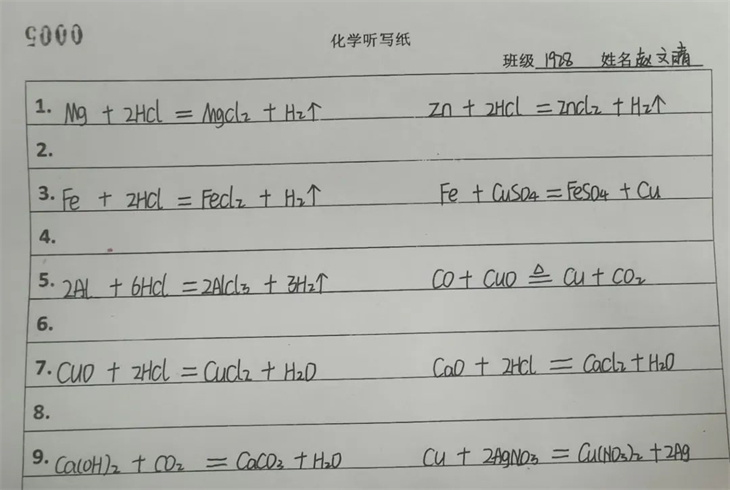 0005
化学听写纸
班级 1928 姓名 赵文晴
1. Mg + 2HCl = MgCl₂ + H₂↑ Zn + 2HCl = ZnCl₂ + H₂↑
2.
3. Fe + 2HCl = FeCl₂ + H₂↑ Fe + CuSO₄ = FeSO₄ + Cu
4.
5. 2Al + 6HCl = 2AlCl₃ + 3H₂↑ CO + CuO ≜ Cu + CO₂
6.
7. CuO + 2HCl = CuCl₂ + H₂O CaO + 2HCl = CaCl₂ + H₂O
8.
9. Ca(OH)₂ + CO₂ = CaCO₃ + H₂O Cu + 2AgNO₃ = Cu(NO₃)₂ + 2Ag